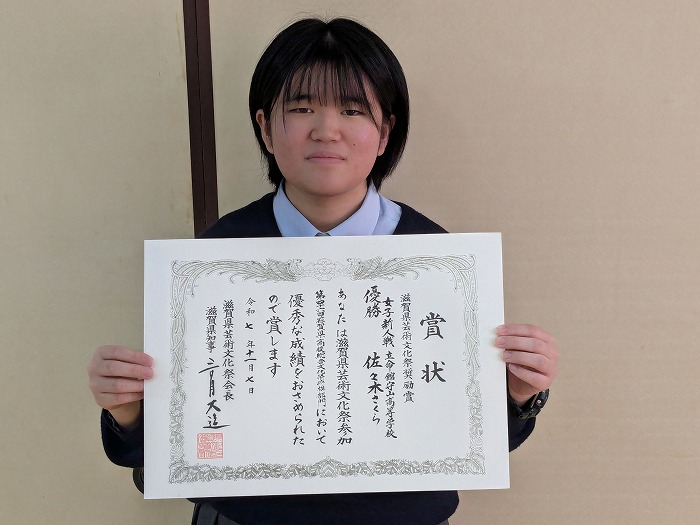 賞状
滋賀県芸術文化祭奨励賞
女子新人戦 立命館守山高等学校
優勝 佐々木さくら
あなたは滋賀県芸術文化祭参加
において
優秀な成績をおさめられた
ので賞します
令和七年十一月七日
滋賀県芸術文化祭会長
滋賀県知事 三日月大造